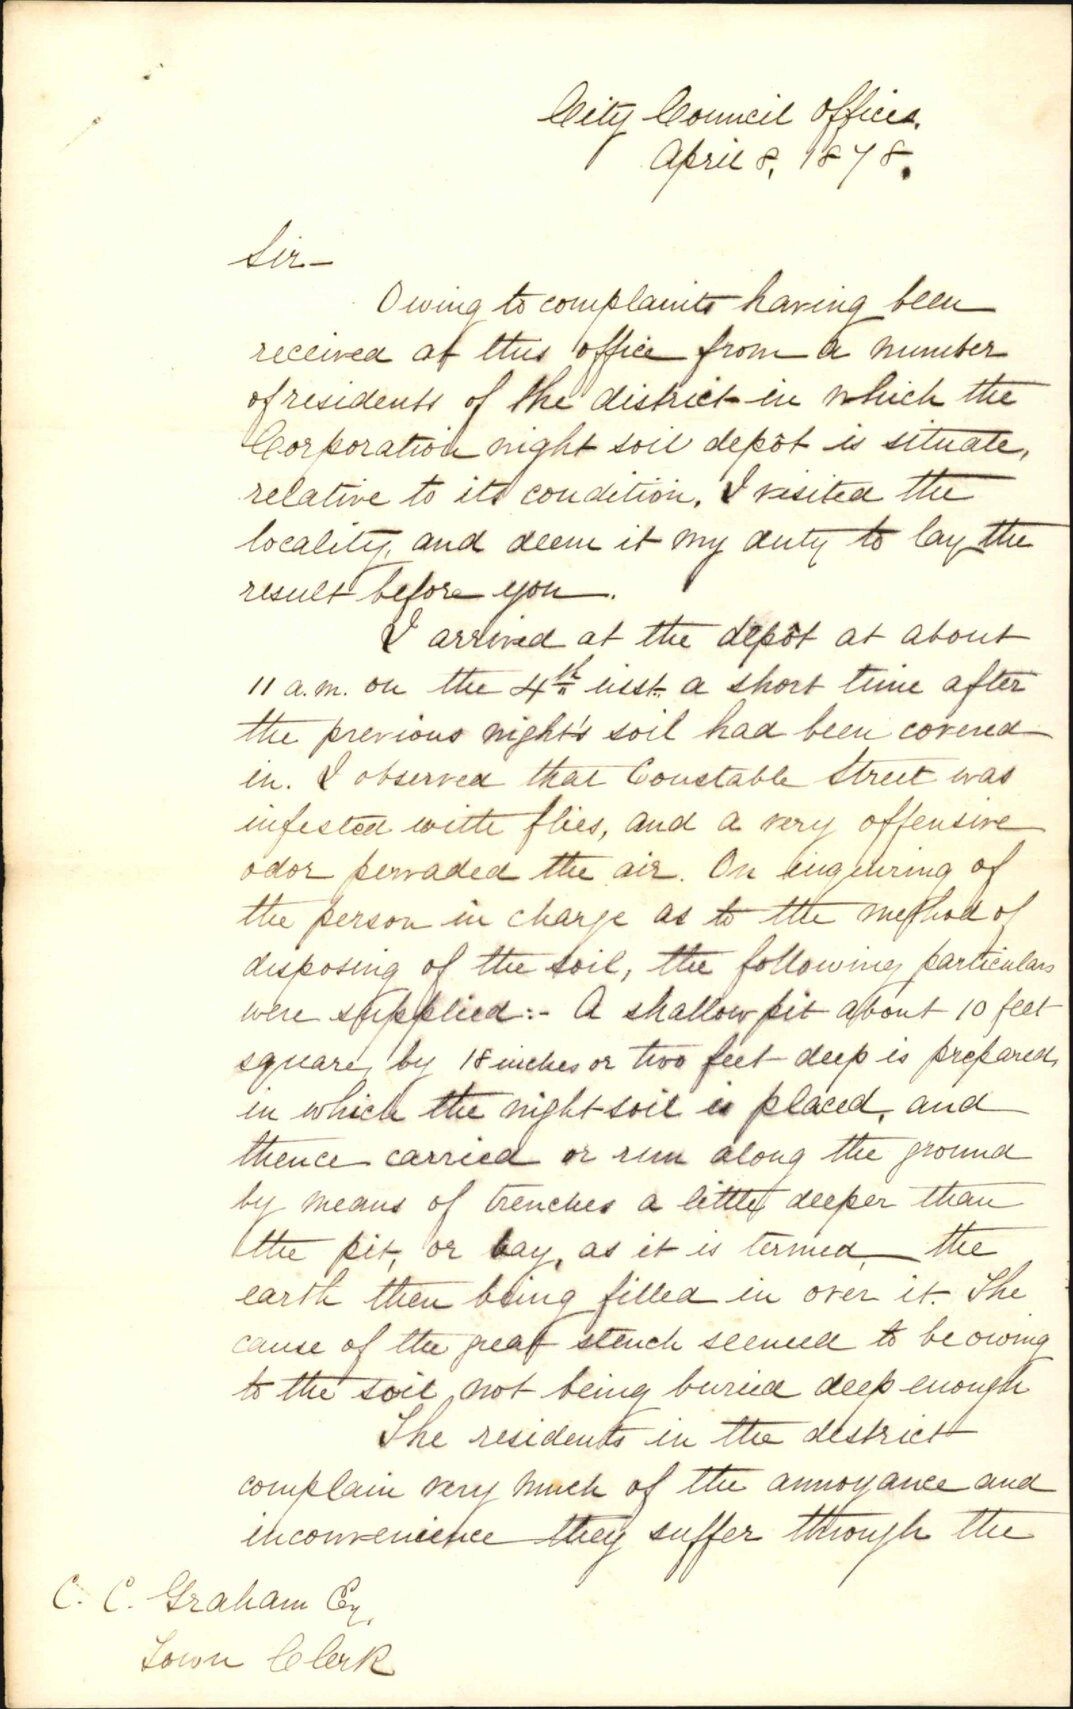 City Council Offices.
April 8, 1878.
Sir—
Owing to complaints having been
received at this office from a number
of residents of the district in which the
Corporation night soil depôt is situate,
relative to its condition, I visited the
locality, and deem it my duty to lay the
result before you.
I arrived at the depôt at about
11 a.m. on the 4th inst. a short time after
the previous night's soil had been covered
in. I observed that Constable Street was
infested with flies, and a very offensive
odor pervaded the air. On enquiring of
the person in charge as to the method of
disposing of the soil, the following particulars
were supplied:- A shallow pit about 10 feet
square, by 18 inches or two feet deep is prepared,
in which the night-soil is placed, and
thence carried or run along the ground
by means of trenches a little deeper than
the pit, or bay, as it is termed, the
earth then being filled in over it. The
cause of the great stench seemed to be owing
to the soil not being buried deep enough
The residents in the district
complain very much of the annoyance and
inconvenience they suffer through the
C. C. Graham Esq,
Town Clerk